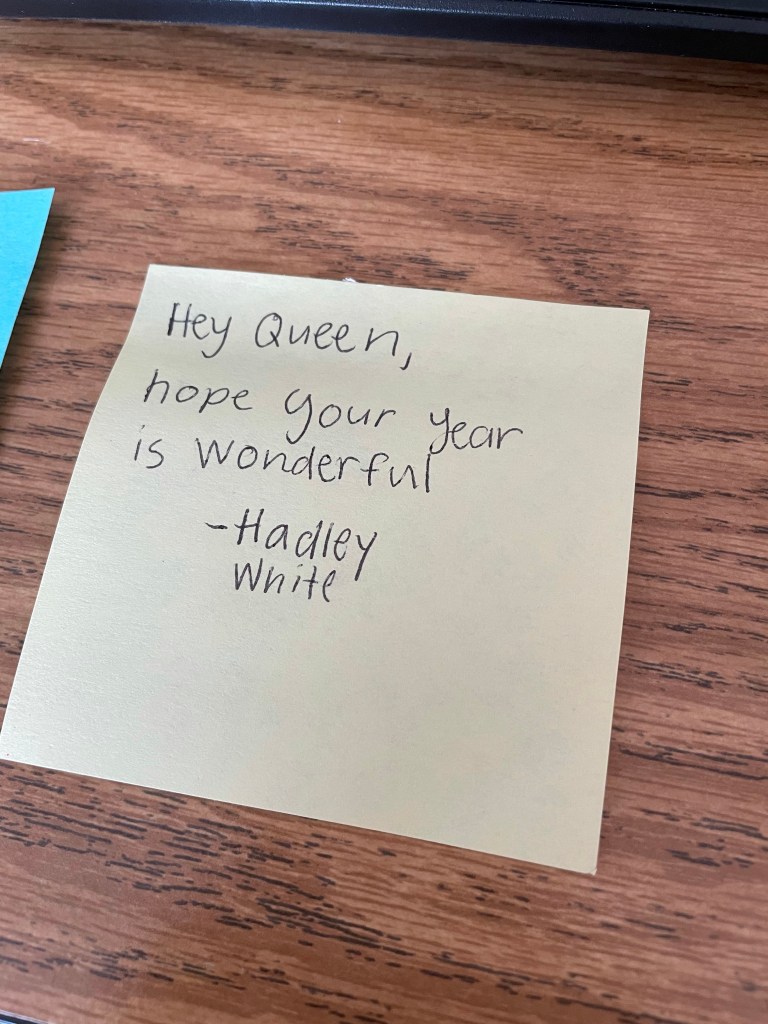 Hey Queen,
hope your year
is wonderful
-Hadley
White